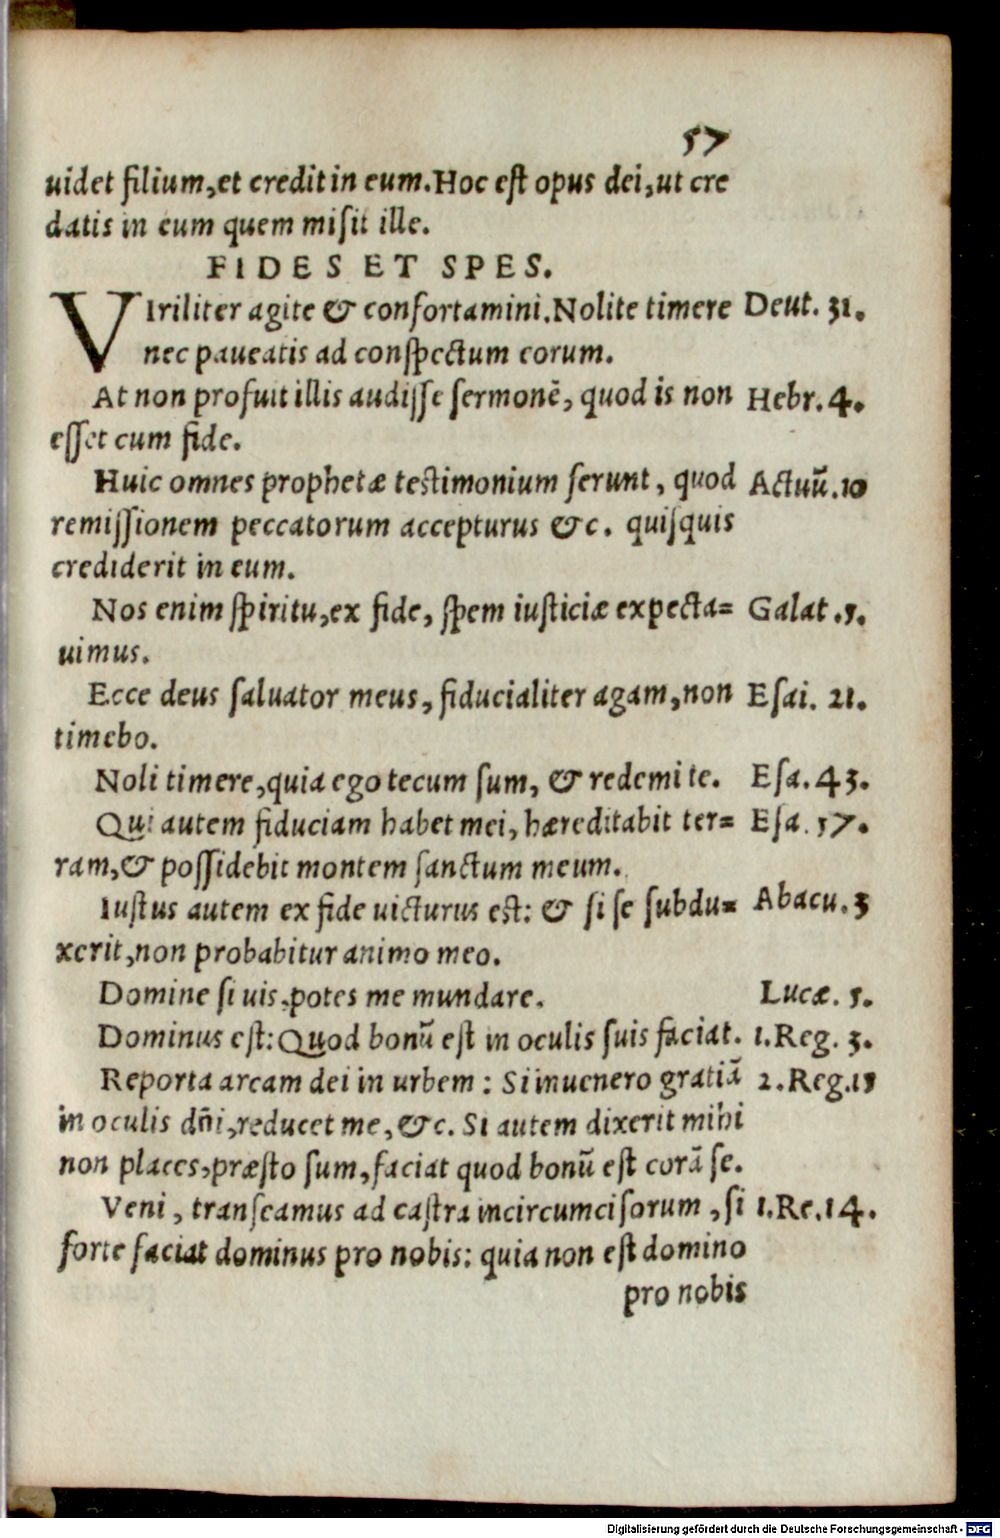 57
uidet filium, et credit in eum. Hoc est opus dei, ut cre
datis in eum quem misit ille.
FIDES ET SPES.
VIriliter agite & confortamini. Nolite timere Deut. 31.
nec paueatis ad conspectum eorum.
At non profuit illis audisse sermonē, quod is non Hebr. 4.
esset cum fide.
Huic omnes prophetæ testimonium ferunt, quod Actuũ. 10
remissionem peccatorum accepturus &c. quisquis
crediderit in eum.
Nos enim spiritu, ex fide, spem iusticiæ expecta= Galat. 5.
uimus.
Ecce deus saluator meus, fiducialiter agam, non Esai. 21.
timebo.
Noli timere, quia ego tecum sum, & redemi te. Esa. 43.
Qui autem fiduciam habet mei, hæreditabit ter= Esa. 57.
ram, & possidebit montem sanctum meum.
Iustus autem ex fide uicturus est: & si se subdu= Abacu. 3
xerit, non probabitur animo meo.
Domine si uis, potes me mundare. Lucæ. 5.
Dominus est: Quod bonũ est in oculis suis faciat. 1. Reg. 3.
Reporta arcam dei in urbem: Si inuenero gratiã 2. Reg. 15
in oculis dñi, reducet me, &c. Si autem dixerit mihi
non places, præsto sum, faciat quod bonũ est corã se.
Veni, transeamus ad castra incircumcisorum, si 1. Re. 14.
forte faciat dominus pro nobis: quia non est domino
pro nobis
Digitalisierung gefördert durch die Deutsche Forschungsgemeinschaft - DFG